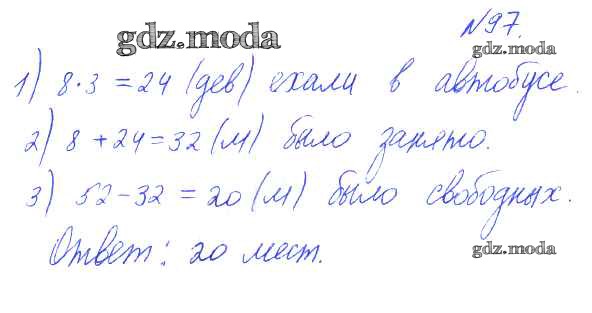 №97.
gdz.moda
gdz.moda
1) 8·3 = 24 (дев) ехали в автобусе.
2) 8 + 24 = 32 (м) было занято.
3) 52 - 32 = 20 (м) было свободных.
Ответ: 20 мест.
gdz.moda